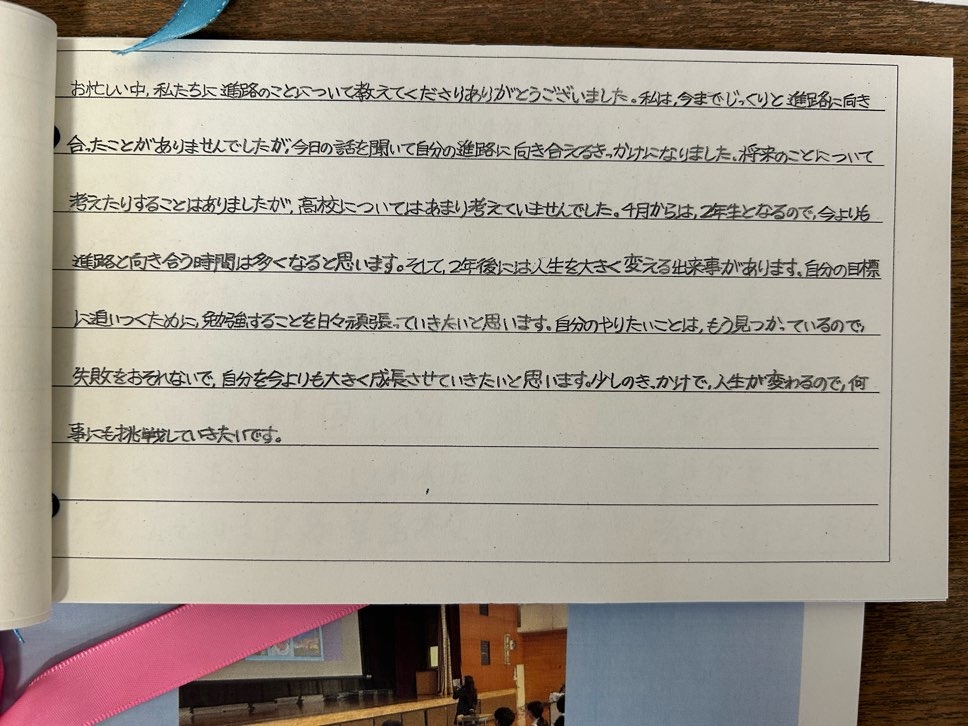 お忙しい中、私たちに進路のことについて教えてくださりありがとうございました。私は、今までじっくりと進路に向き
合ったことがありませんでしたが、今日の話を聞いて自分の進路に向き合えるきっかけになりました。将来のことについて
考えたりすることはありましたが、高校についてはあまり考えていませんでした。4月からは、2年生となるので、今よりも
進路と向き合う時間は多くなると思います。そして、2年後には人生を大きく変える出来事があります。自分の目標
に追いつくために、勉強することを日々頑張っていきたいと思います。自分のやりたいことは、もう見つかっているので、
失敗をおそれないで、自分を今よりも大きく成長させていきたいと思います。少しのきっかけで、人生が変わるので、何
事にも挑戦していきたいです。